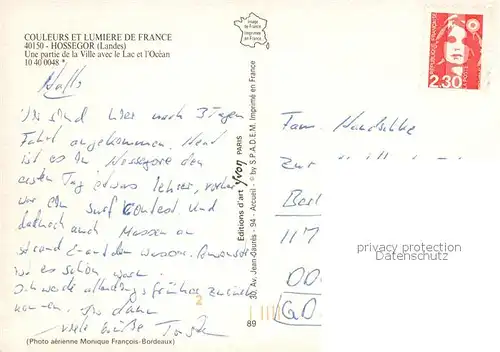 COULEURS ET LUMIERE DE FRANCE
40150 - HOSSEGOR (Landes)
Une partie de la Ville avec le Lac et l'Océan
10 40 0048 *
Image de France
Imprimée en France
RÉPUBLIQUE FRANÇAISE
LA POSTE
2,30
Hallo
Wir sind hier nach 3 Tagen
Fahrt angekommen. Heut
ist es in Hossegore den
ersten Tag etwas leerer, vorher
war ein Surf Contest. Und
dadurch auch Massen an
Strand und an den Wassern. Ansonsten
ist es schön warm.
Ich werde allerdings früher zurück
kommen. bis dann
viele Grüße
Editions d'art yvon PARIS
30, Av. Jean-Jaurès - 94 - Arcueil - © by S.P.A.D.E.M. Imprimé en France
89
2
Fam.
Zur
Berl
117
DD
(GD
privacy protection
www.oldthing.de
(Photo aérienne Monique François-Bordeaux)